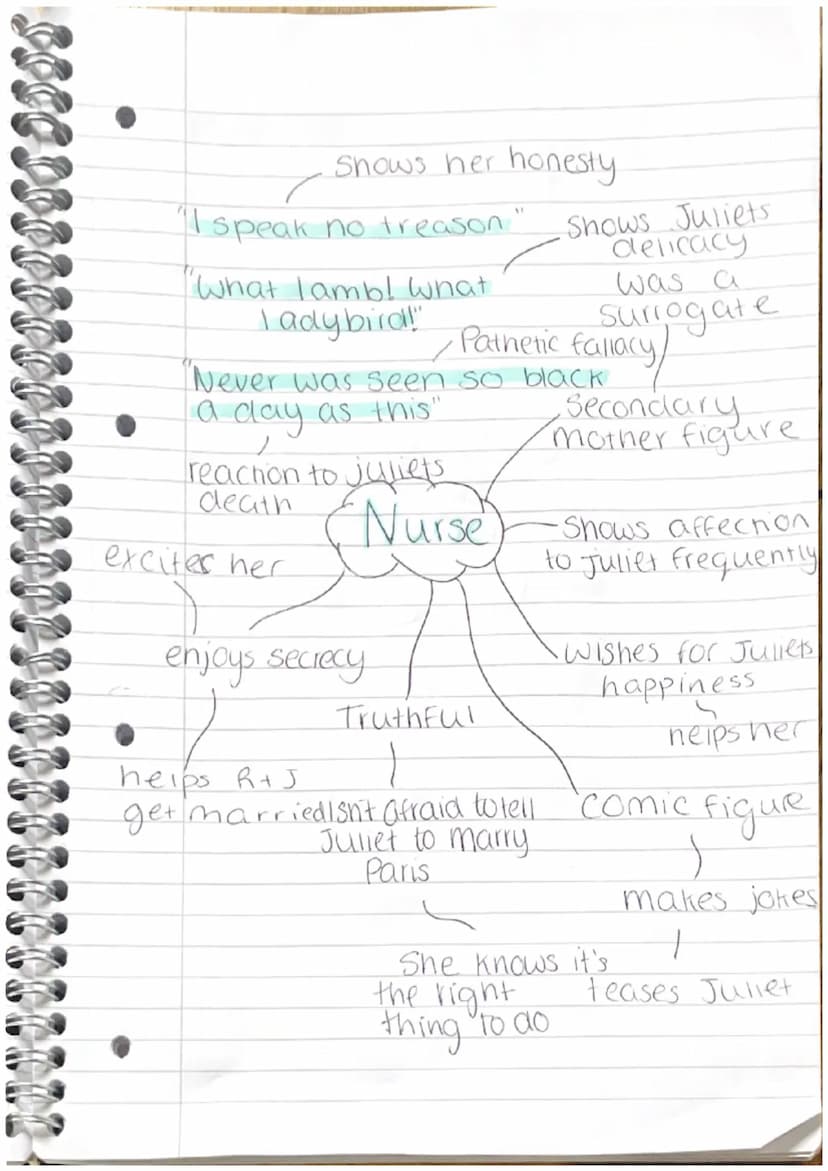 Shows her honesty
"I speak no treason"
Shows Juliets
delicacy
"What lamb! What
ladybird!"
was a
surrogate
Pathetic fallacy
"Never was seen so black
a day as this"
Secondary
mother figure
reaction to juliets
death
Nurse
Shows affection
to juliet frequently
excites her
enjoys secrecy
wishes for Juliets
happiness
helps her
Truthful
helps R+J
get married
Isn't afraid to tell
Juliet to marry
Paris
comic figure
makes jokes
She knows it's
the right
thing to do
teases Juliet